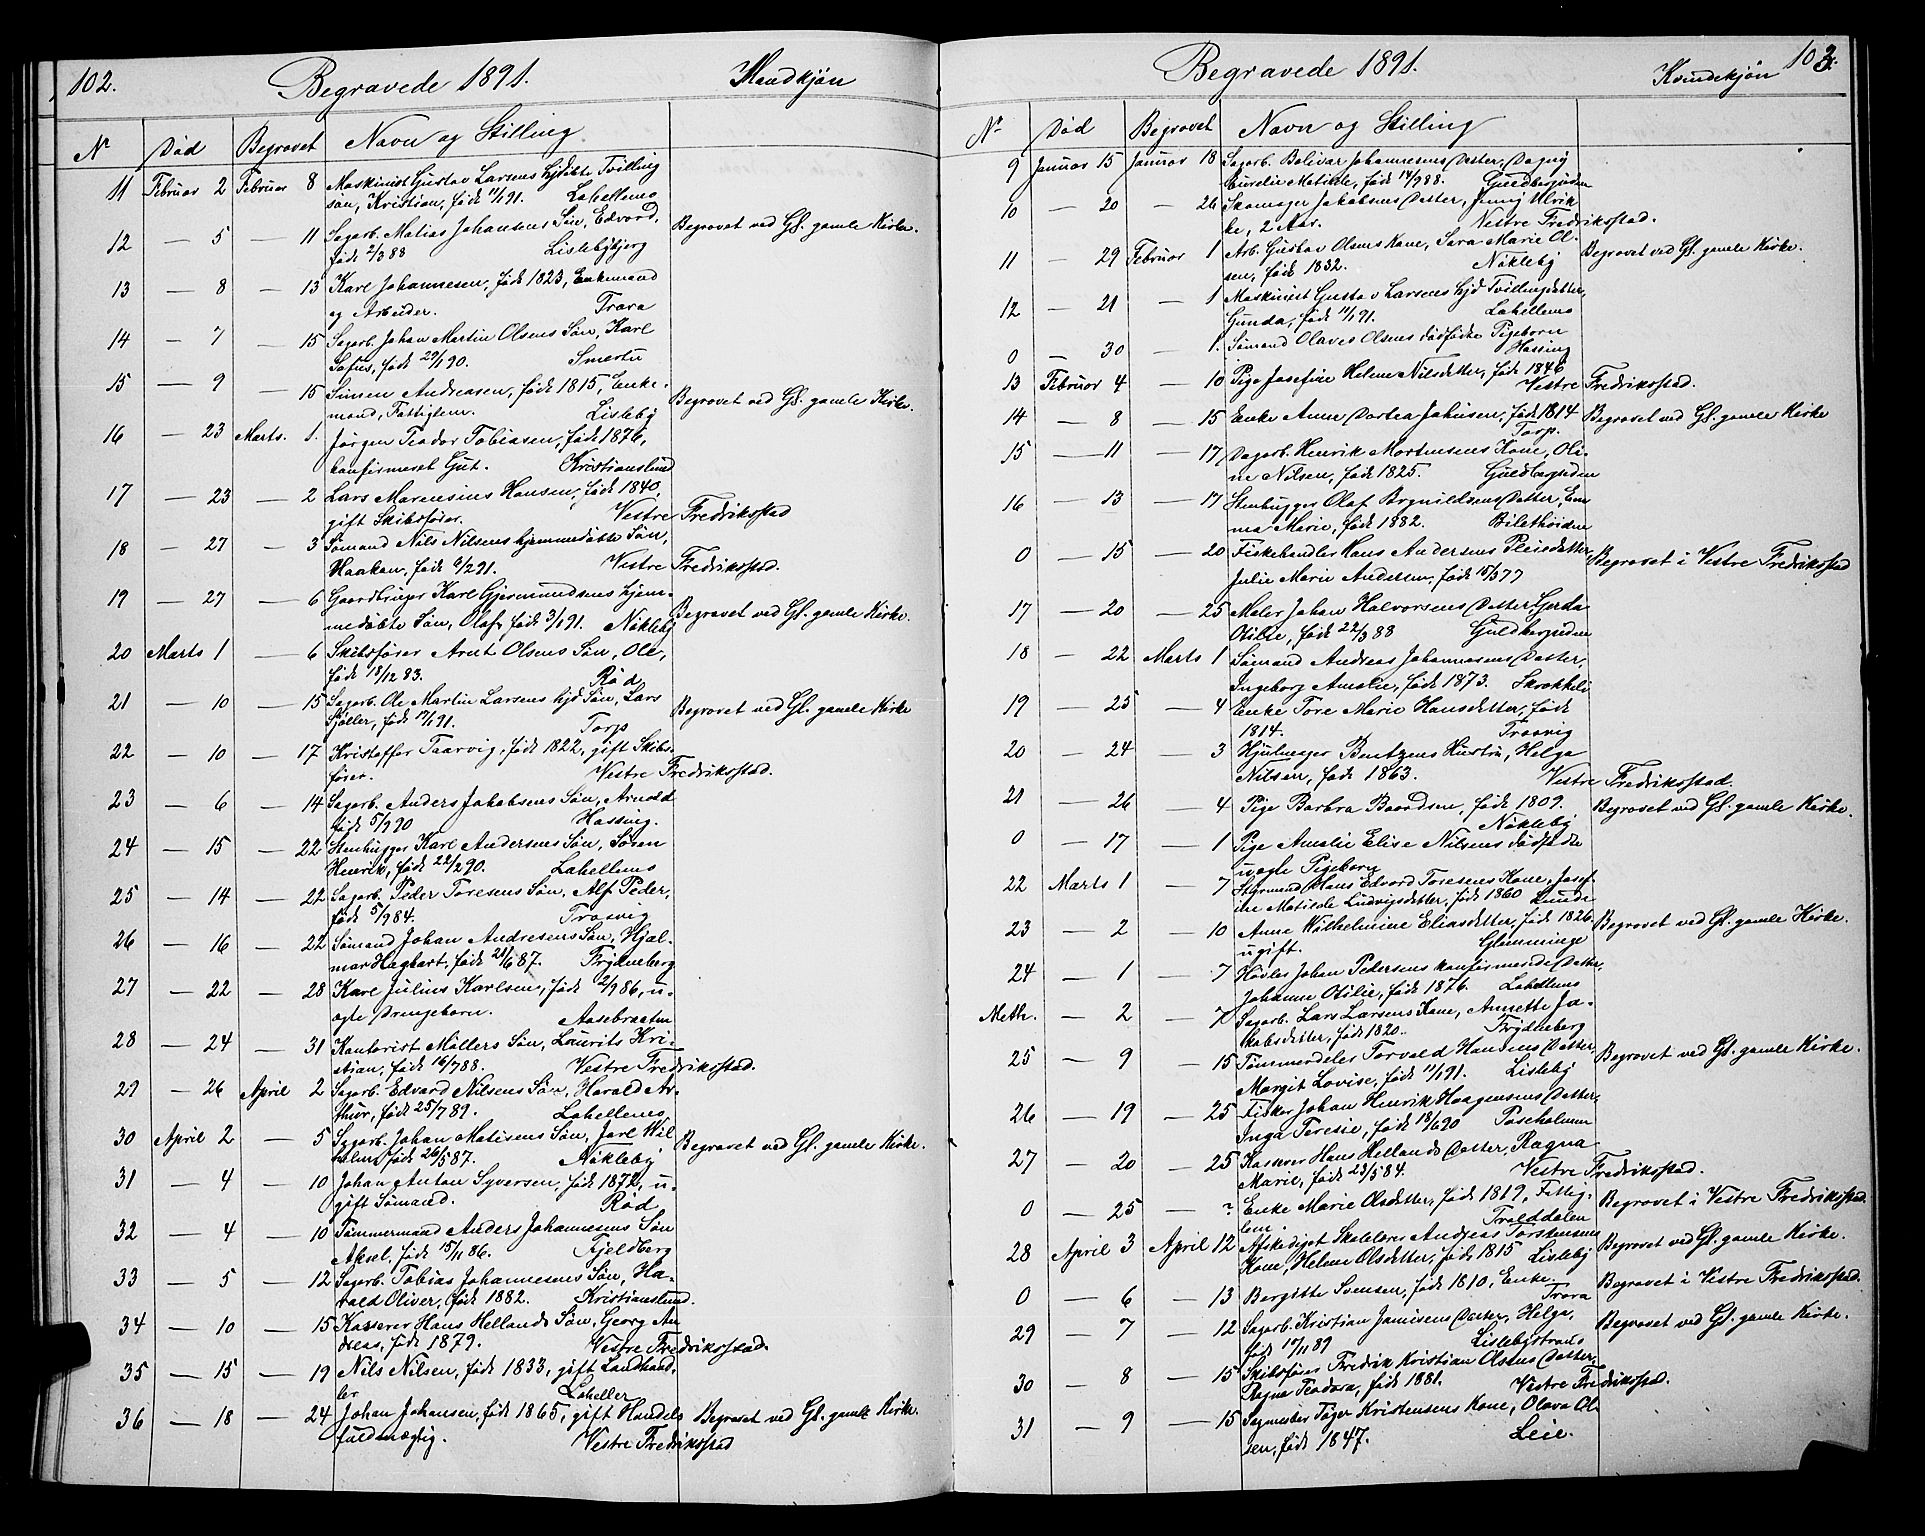 102. Begravede 1891. Mandkjøn
No Død Begravet Navn og Stilling
11 Februar 2 Februar 8 Maskinist Gustav Larsens hjdøbte Tvilling
søn, Kristian, født 11/1 91. Labellens
12 — 5 — 11 Sagarb. Matias Johansens Søn, Edvard, Begravet ved Gl. gamle Kirke.
født 2/3 88 Lislebybjerg
13 — 8 — 13 Karl Johannesen, født 1823, Enkemand
og Arbeider. Trara
14 — 7 — 15 Sagarb. Johan Martin Olsens Søn, Karl
Sofus, født 29/1 90. Smertu
15 — 9 — 15 Simen Andreasen, født 1815, Enke- Begravet ved Gl. gamle Kirke.
mand, Fattiglem. Lisleby
16 — 23 Marts. 1. Jørgen Teodor Tobiasen, født 1876,
konfirmeret Gut. Kristianslund
17 — 23 — 2 Lars Marensius Hansen, født 1840,
gift Skibsfører. Vestre Fredriksstad
18 — 27 — 3 Sømand Nils Nilsens hjemmedøbte Søn,
Haakon, født 6/2 91. Vestre Fredriksstad.
19 — 27 — 6 Gaardbruger Karl Gjermundsens hjem-
medøbte Søn, Olaf, født 3/1 91. Nøkleby Begravet ved Gl. gamle Kirke.
20 Marts 1 — 6 Skibsfører Arnt Olsens Søn, Ole,
født 18/12 83. Rød
21 — 10 — 15 Sagarb. Ole Martin Larsens hjd Søn, Lars Begravet ved Gl. gamle Kirke
født 17/1 91. Torp
22 — 10 — 17 Kristoffer Taarvig, født 1822, gift Skibs-
fører. Vestre Fredriksstad.
23 — 6 — 14 Sagarb. Anders Jakobsens Søn, Arnold
født 5/9 90 Hassing.
24 — 15 — 22 Stenhugger Karl Andersens Søn, Søren
Henrik, født 22/2 90. Labellens
25 — 14 — 22 Sagarb. Peder Toresens Søn, Alf Peder,
født 5/9 84. Traavig
26 — 16 — 22 Sømand Johan Andresens Søn, Hjal-
mar Hagbart, født 28/6 87. Frydneberg
27 — 22 — 28 Karl Julius Karlsen, født 2/9 86, u-
ægte Drengebarn. Aasebraaten
28 — 24 — 31 Kontorist Møllers Søn, Laurits Kri-
stian, født 16/7 88. Vestre Fredriksstad.
29 — 26 April 2 Sagarb. Edvard Nilsens Søn, Harald Ar-
thur, født 25/7 89. Labellens
30 April 2 — 5 Sagarb. Johan Matisens Søn, Jarl Wil
helm, født 26/5 87. Nøkleby Begravet ved Gl. gamle Kirke.
31 — 4 — 10 Johan Anton Syversen, født 1872, u-
gift Sømand. Rød
32 — 4 — 10 Tømmermand Anders Johannesens Søn
Aksel, født 15/11 86. Fjeldberg
33 — 5 — 12 Sagarb. Tobias Johannesens Søn, Ha-
rald Oliver, født 1882. Kristianslund.
34 — 10 — 15 Kasserer Hans Hellands Søn, Georg An
dreas, født 1879. Vestre Fredriksstad.
35 — 15 — 19 Nils Nilsen, født 1833, gift Landhand-
ler Labeller
36 — 18 — 24 Johan Johansen, født 1865, gift Handels Begravet ved Gl. gamle Kirke.
fuldmægtig. Vestre Fredriksstad
Begravede 1891. Kvindekjøn 103.
No Død Begravet Navn og Stilling
9 Januar 15 Januar 18 Sagarb. Bolivar Johannesens Datter, Dagny
Aurelie Matilde, født 14/9 88. Guldbergsiden
10 — 20 — 26 Skomager Jakobsens Datter, Jenny Ulrik
ke, 2 Aar. Vestre Fredriksstad.
11 — 29 Februar 1 Arb. Gustav Olsens Kone, Sara Marie Ol- Begravet ved Gl. gamle Kirke.
sen, født 1832. Nøkleby
12 — 21 — 1 Maskinist Gustav Larsens hjd Tvillingdatter,
Gunda, født 11/1 91. Labellens
0 — 30 — 1. Sømand Olaves Olsens dødfødte Pigebarn
Hassing
13 Februar 4 — 10 Pige Josefine Helene Nilsdatter, født 1846
Vestre Fredriksstad.
14 — 8 — 15 Enke Anne Dortea Johnsen, født 1814 Begravet ved Gl. gamle Kirke
Torp.
15 — 11 — 17 Dagarb. Henrik Mortensens Kone, Oli-
ne Nilsen, født 1825. Guldbergsiden
16 — 13 — 17 Stenhugger Olaf Brynildsens Datter, Em
ma Marie, født 1882. Bilethøiden
0 — 15 — 20 Fiskehandler Hans Andersens Pleiedatter, Begravet i Vestre Fredriksstad
Julie Marie Andersen, født 15/5 77
17 — 20 — 25 Maler Johan Halvorsens Datter Gerda
Otilie, født 22/3 88 Guldbergsiden
18 — 22 Marts 1 Sømand Andreas Johannesens Datter,
Ingeborg Amalie, født 1873. Skrokkeli
19 — 25 — 4 Enke Tore Marie Hansdatter, født
1814. Traavig
20 — 24 — 3 Hjulmager Bentzens Hustru, Helga
Nilsen, født 1863. Vestre Fredriksstad.
21 — 26 — 4 Pige Barbra Baardsen, født 1809. Begravet ved Gl. gamle Kirke.
Nøkleby
0 — 17 — 1 Pige Amalie Elise Nilsens dødfødte
uægte Pigebarn
22 Marts 1 — 7 Styrmand Hans Edvard Toresens Kone, Josef-
ine Matisole Ludvigsdatter, født 1860 Lunde
23 — 2 — 10 Anne Wilhelmine Eliasdatter, født 1826. Begravet ved Gl. gamle Kirke.
ugift. Glemminge
24 — 1 — 7 Høvler Johan Pedersens konfirmerede Datter,
Johanne Otilie, født 1876. Labellens
Meth. — 2 — 7 Sagarb. Lars Larsens Kone, Annette Ja-
kobsdatter, født 1820. Frydneberg
25 — 9 — 15 Tømmerdeler Torvald Hansens Datter, Begravet ved Gl. gamle Kirke.
Margit Lovise, født 11/1 91. Lisleby
26 — 19 — 25 Fisker Johan Henrik Haagensens Datter,
Inga Teresie, født 18/6 90 Paaseholmen
27 — 20 — 25 Kasserer Hans Hellands Datter, Ragna
Marie, født 23/5 84. Vestre Fredriksstad.
0 — 25 — ? Enke Marie Olsdatter, født 1819, Fattig- Begravet i Vestre Fredriksstad.
lem. Tralddalen
28 April 3 April 12 Afskediget Skolelærer Andreas Torskensens Begravet ved Gl. gamle Kirke.
Kone, Helene Olsdatter, født 1815 Lisleby
0 — 6 — 13 Bergitte Svensen, født 1810, Enke. Begravet i Vestre Fredriksstad.
Trara
29 — 7 — 12 Sagarb. Kristian Jensens Datter, Helga, Begravet ved Gl. gamle Kirke.
født 17/11 89 Lislebystrand
30 — 8 — 15 Skibsfører Fredrik Kristian Olsens Datter,
Ragna Teodora, født 1881. Vestre Fredriksstad.
31 — 9 — 15 Sagmester Tøger Kristensens Kone, Olava Ol-
sen, født 1847. Leie.